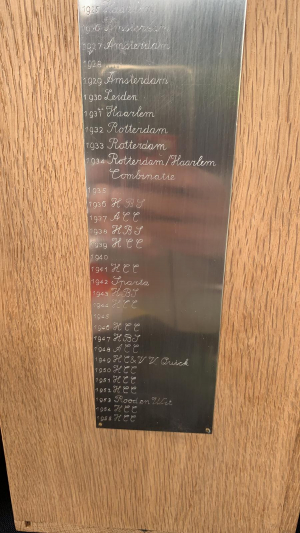 1926 Amsterdam
1927 Amsterdam
1928
1929 Amsterdam
1930 Leiden
1931 Haarlem
1932 Rotterdam
1933 Rotterdam
1934 Rotterdam/Haarlem
Combinatie
1935
1936 HBS
1937 ACC
1938 HBS
1939 HCC
1940
1941 HCC
1942 Sparta
1943 HBS
1944 HCC
1945
1946 HCC
1947 HBS
1948 ACC
1949 HC & V V Quick
1950 HCC
1951 HCC
1952 HCC
1953 Rood en Wit
1954 HCC
1955 HCC